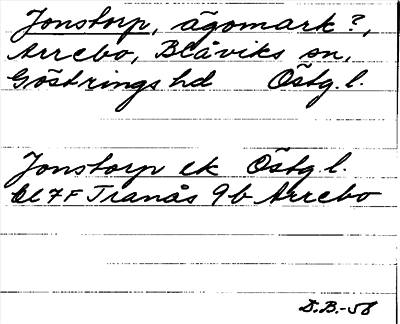 Jonstorp, ägomark?,
Arrebo, Blåviks sn,
Göstrings hd Östg.l.
Jonstorp ek Östg l.
Bl 7F Tranås 9b Arrebo
D.B.-58